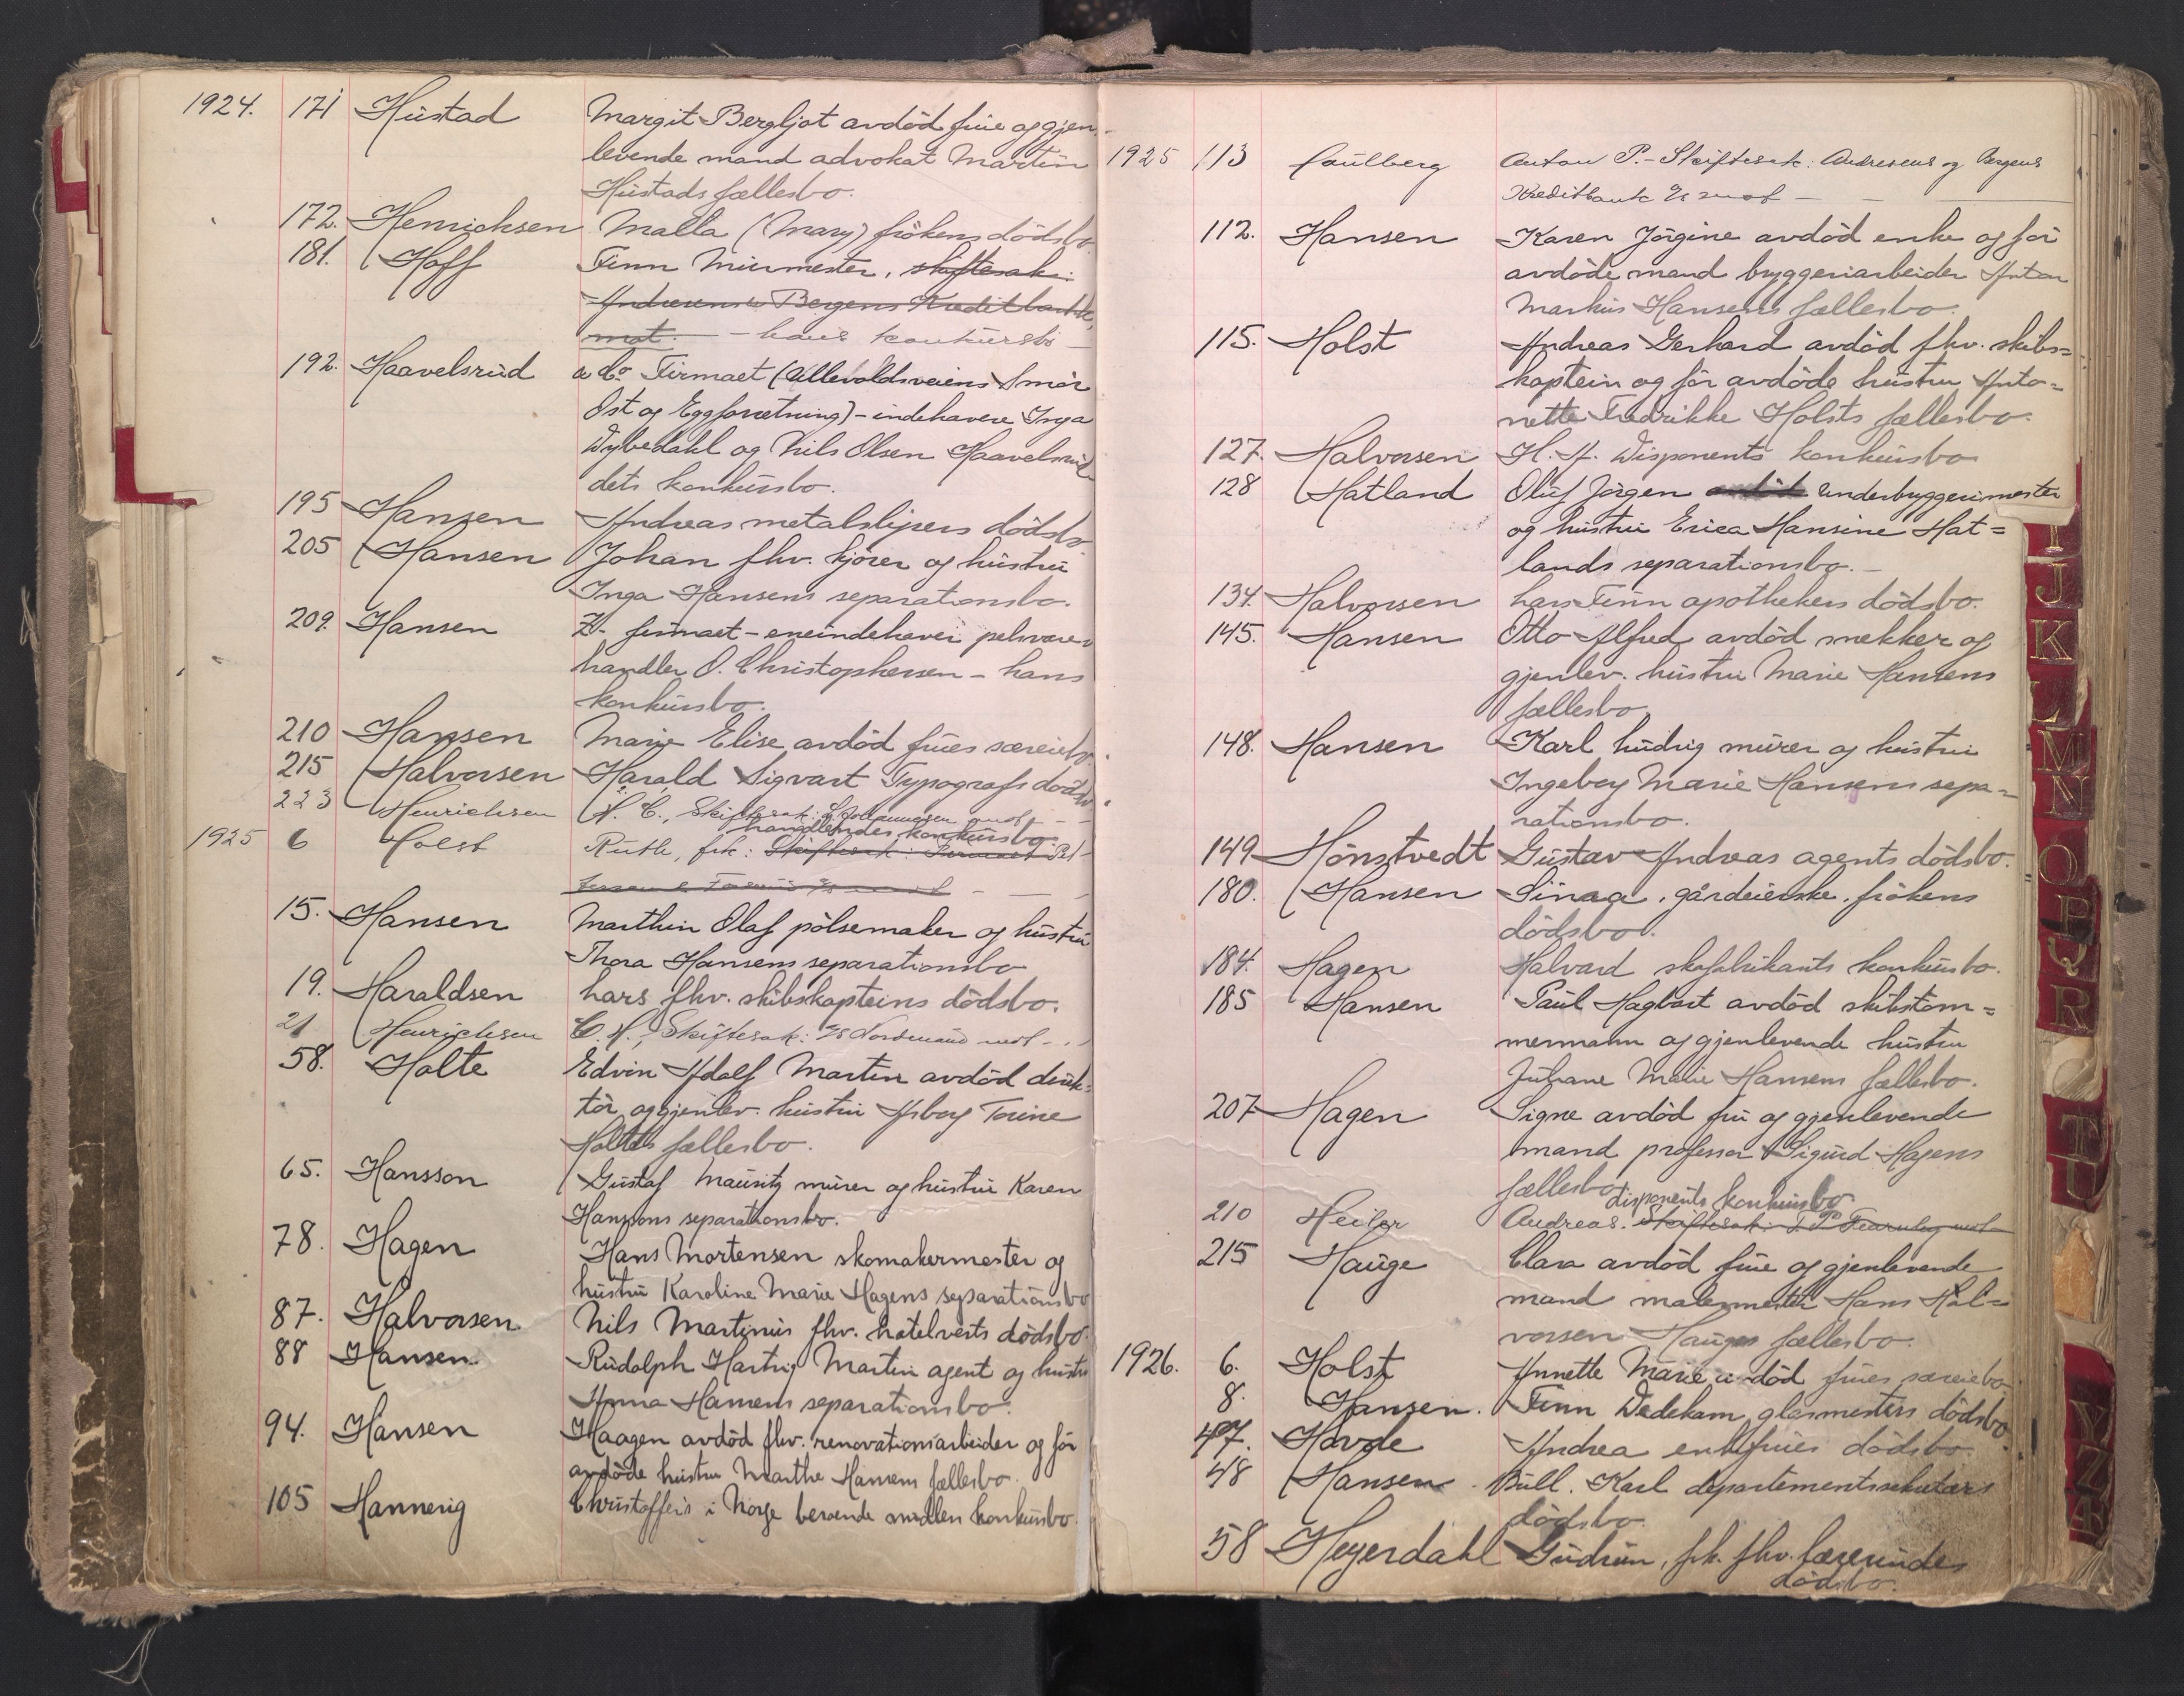 1924. 171 Hustad Margit Bergljot avdöd frue og gjen-
levende mand advokat Martin
Hustads fællesbo.
172. Henrichsen Malla (Mary) frökens dödsbo
181. Hoff Finn Murmester, skiftesak:
Andresens & Bergens Kreditbank
mot. — hans konkursbo —
192. Haavelsrud & Co. Firmaet (Ullevoldsveiens Smör
Ost og Eggforretning) - indehavere Inga
Dybedahl og Nils Olsen Haavelsrud
dets konkursbo.
195 Hansen Andreas metalslipers dödsbo
205 Hansen Johan fhv. kjörer og hustru
Inga Hansens separationsbo.
209. Hansen Z. firmaet - eneindehaver pelsvare-
handler O. Christophersen - hans
konkursbo.
210 Hansen Marie Elise avdöd frues særeiebo.
215 Halvorsen Harald Sigvart Typografs dödsbo
223 Henrichsen C., Skiftesak: Johannesen mot - -
handlendes konkursbo
1925 6 Holst Ruth, frk: Skiftesak: Firmaet
15. Hansen Marthin Olaf pölsemaker og hustru
Thora Hansens separationsbo
19. Haraldsen Lars fhv. skibskapteins dödsbo.
21 Henrichsen C. H., Skiftesak: Nordmand mot - . -
58. Holte Edvin Adolf Martin avdöd direk-
tör og gjenlev. hustru Asborg Torine
Holtes fællesbo.
65. Hansson Gustaf Mauritz murer og hustru Karen
Hanssons separationsbo.
78. Hagen Hans Mortensen skomakermester og
hustru Karoline Marie Hagens separationsbo
87. Halvorsen Nils Martinius fhv. hotelverts dödsbo.
88 Hansen. Rudolph Hartvig Martin agent og hustru
Anna Hansens separationsbo.
94. Hansen Haagen avdöd fhv. renovationsarbeider og för
avdöde hustru Marthe Hansens fællesbo.
105 Hannevig Christoffers i Norge beroende midlers konkursbo.
1925 113 Faulberg Anton P. - Skiftesak: Andresens og Bergens
Kreditbank mot - -
112. Hansen Karen Jörgine avdöd enke og för
avdöde mand bryggeriarbeider Anton
Markus Hansens fællesbo.
115. Holst Andreas Gerhard avdöd fhv. skibs=
kaptein og för avdöde hustru Anto=
nette Fredrikke Holsts fællesbo.
127. Halvorsen H. A. Disponents konkursbo
128 Hatland Oluf Jörgen underbryggerimester
og hustru Erica Hansine Hat=
lands separationsbo. -
134. Halvorsen Lars Finn apothekers dödsbo.
145. Hansen Otto Alfred avdöd snekker og
gjenlev. hustru Marie Hansens
fællesbo
148. Hansen Karl Ludvig murer og hustru
Ingeborg Marie Hansens sepa=
rationsbo.
149 Hönstvedt Gustav Andreas agents dödsbo.
180. Hansen Sinaa, gårdeierske, frökens
dödsbo.
184. Hagen Halvard skofabrikants konkursbo.
185 Hansen Paul Hagbart avdöd skibstöm=
mermann og gjenlevende hustru
Juliane Marie Hansens fællesbo.
207 Hagen Signe avdöd fru og gjenlevende
mand professor Sigurd Hagens
fællesbo
disponents konkursbo
210 Heiler Andreas. Skiftesak: Fearnley mot
215 Hauge Clara avdöd frue og gjenlevende
mand malermester Hans Hal=
vorsen Hauges fællesbo.
1926. 6. Holst Annette Marie avdöd frues særeiebo
8. Hansen. Finn Dedekam glasmesters dödsbo.
47. Havde Andrea enkefrues dödsbo
48 Hansen Bull. Karl departementssekretærs
dödsbo.
58 Heyerdahl Gudrun, frk. fhv. lærerindes
dödsbo.
I
J
K
L
M
N
O
P
Q
R
T
U
V
Z